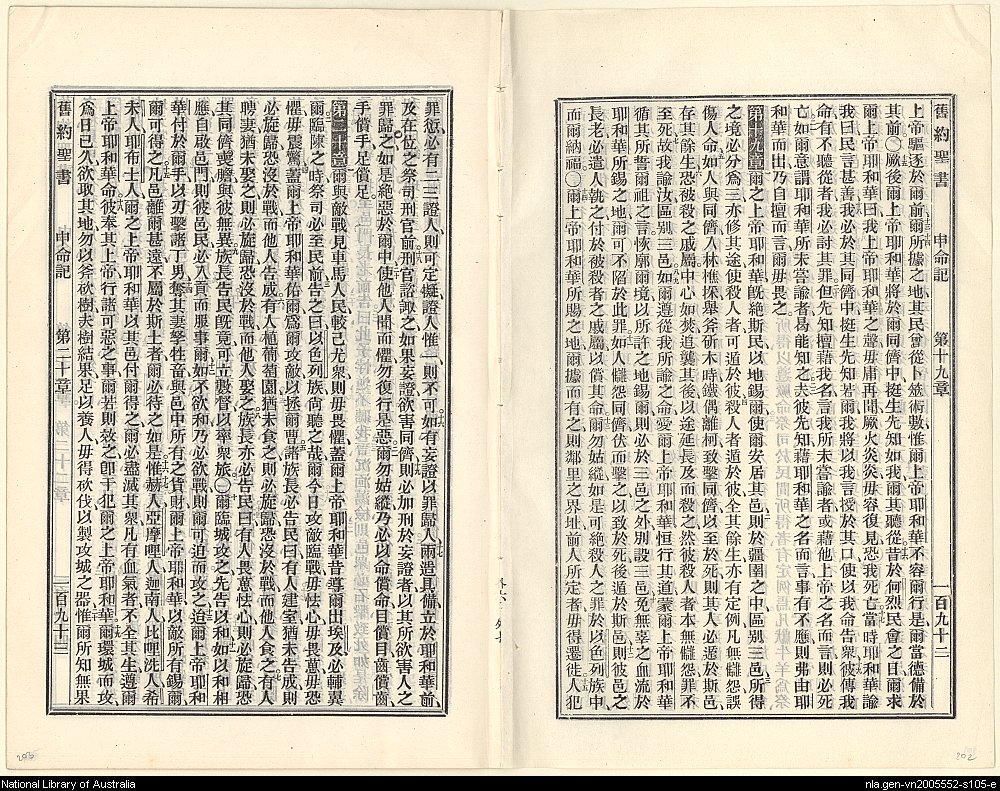 舊約聖書 申命記 第十九章 一百九十二
上帝驅逐於爾前爾所據之地其民曾從卜筮術數惟爾上帝耶和華不容爾行是爾當德備於
其前○厥後爾上帝耶和華將於爾同儕中挺生先知如我爾其聽從昔於何烈民會之日爾求
爾上帝耶和華曰我上帝耶和華之聲毋庸再聞厥火炎炎毋容復見恐我死亡當時耶和華諭
我曰民言甚善我必於其同儕中挺生先知若爾我將以我言授於其口使以我命告衆彼傳我
命有不聽從者我必討其罪但先知擅藉我名言我所未嘗諭者或藉他上帝之名而言則必死
亡如爾意謂耶和華所未嘗諭者曷能知之夫彼先知藉耶和華之名而言事有不應則弗由耶
和華而出乃自擅而言爾毋畏之
第十九章爾之上帝耶和華旣絕斯民以地錫爾使爾安居其邑則於疆圉之中區別三邑所得
之境必分爲三亦修其途使殺人者可遁於彼殺人者遁於彼全其餘生亦有定例凡無讎怨誤
傷人命如人與同儕入林樵採舉斧斫木時鐵偶離柯致擊同儕以至於死則其人必遁於斯邑
存其餘生恐被殺之戚屬中心如焚追襲其後以途延長及而殺之然彼殺人者本無讎怨罪不
至死故我諭汝區別三邑如爾遵從我所許之命愛爾上帝耶和華恒行其道蒙爾上帝耶和華
循其所誓爾祖之言恢廓爾境以所許之地錫爾則必於三邑之外別設三邑免無辜之血流於
耶和華所錫之地爾可不陷於此罪如人讎怨同儕伏而擊之以致於死後遁於斯邑則彼邑之
長老必遣人執之付於被殺者之戚屬以償其命爾勿姑縱如是可絕殺人之罪於以色列族中
而爾納福○爾上帝耶和華所賜之地爾據而有之則鄰里之界址前人所定者毋得遷徙人犯
罪愆必有二三證人則可定擬證人惟一則不可如有妄證以罪歸人兩造具備立於耶和華前
及在位之祭司刑官前刑官諮諏之如果妄證欲害同儕則必加刑於妄證者以其所欲害人之
罪歸之如是絕惡於爾中使他人聞而懼勿復行是惡爾勿姑縱乃必以命償命目償目齒償齒
手償手足償足
第二十章爾與敵戰見車馬人民較己尤衆則毋畏懼蓋爾上帝耶和華昔導爾出埃及必輔翼
爾臨陳之時祭司必至民前告之曰以色列族尚聽之哉爾今日攻敵臨戰毋怯心毋畏葸毋恐
懼毋震驚蓋爾上帝耶和華佑爾爲爾攻敵以拯爾曹諸族長必告民曰有人建室猶未告成則
必旋歸恐沒於戰而他人告成有人植葡萄園猶未食之則必旋歸恐沒於戰而他人食之有人
聘妻猶未娶之則必旋歸恐沒於戰而他人娶之族長亦必告民曰有人畏葸怯心則必旋歸恐
其同儕喪膽與彼無異族長告民旣竟可立督以率衆旅○爾臨城攻之先告以和如以和相
應自啟邑門則彼邑民必入貢而服事爾如不欲和乃必欲戰則爾可迫而攻之迨爾上帝耶和
華付於爾手以刃擊諸丁男奪其妻孥牲畜與邑中所有之貨財爾上帝耶和華以敵所有錫爾
爾可得之凡邑離爾甚遠不屬於斯土者爾必待之如是惟赫人亞摩哩人迦南人比哩洗人希
未人耶布士人爾之上帝耶和華以其邑付爾得之爾必盡滅其衆凡有血氣者不全其生遵爾
上帝耶和華命彼奉其上帝行諸可惡之事爾若則效之卽干犯爾之上帝耶和華爾環城而攻
爲日已久欲取其地勿以斧砍樹夫樹結果足以養人毋得砍伐以製攻城之器惟爾所知無果
舊約聖書 申命記 第二十章 一百九十三
203
202
National Library of Australia
nla.gen-vn2005552-s105-e